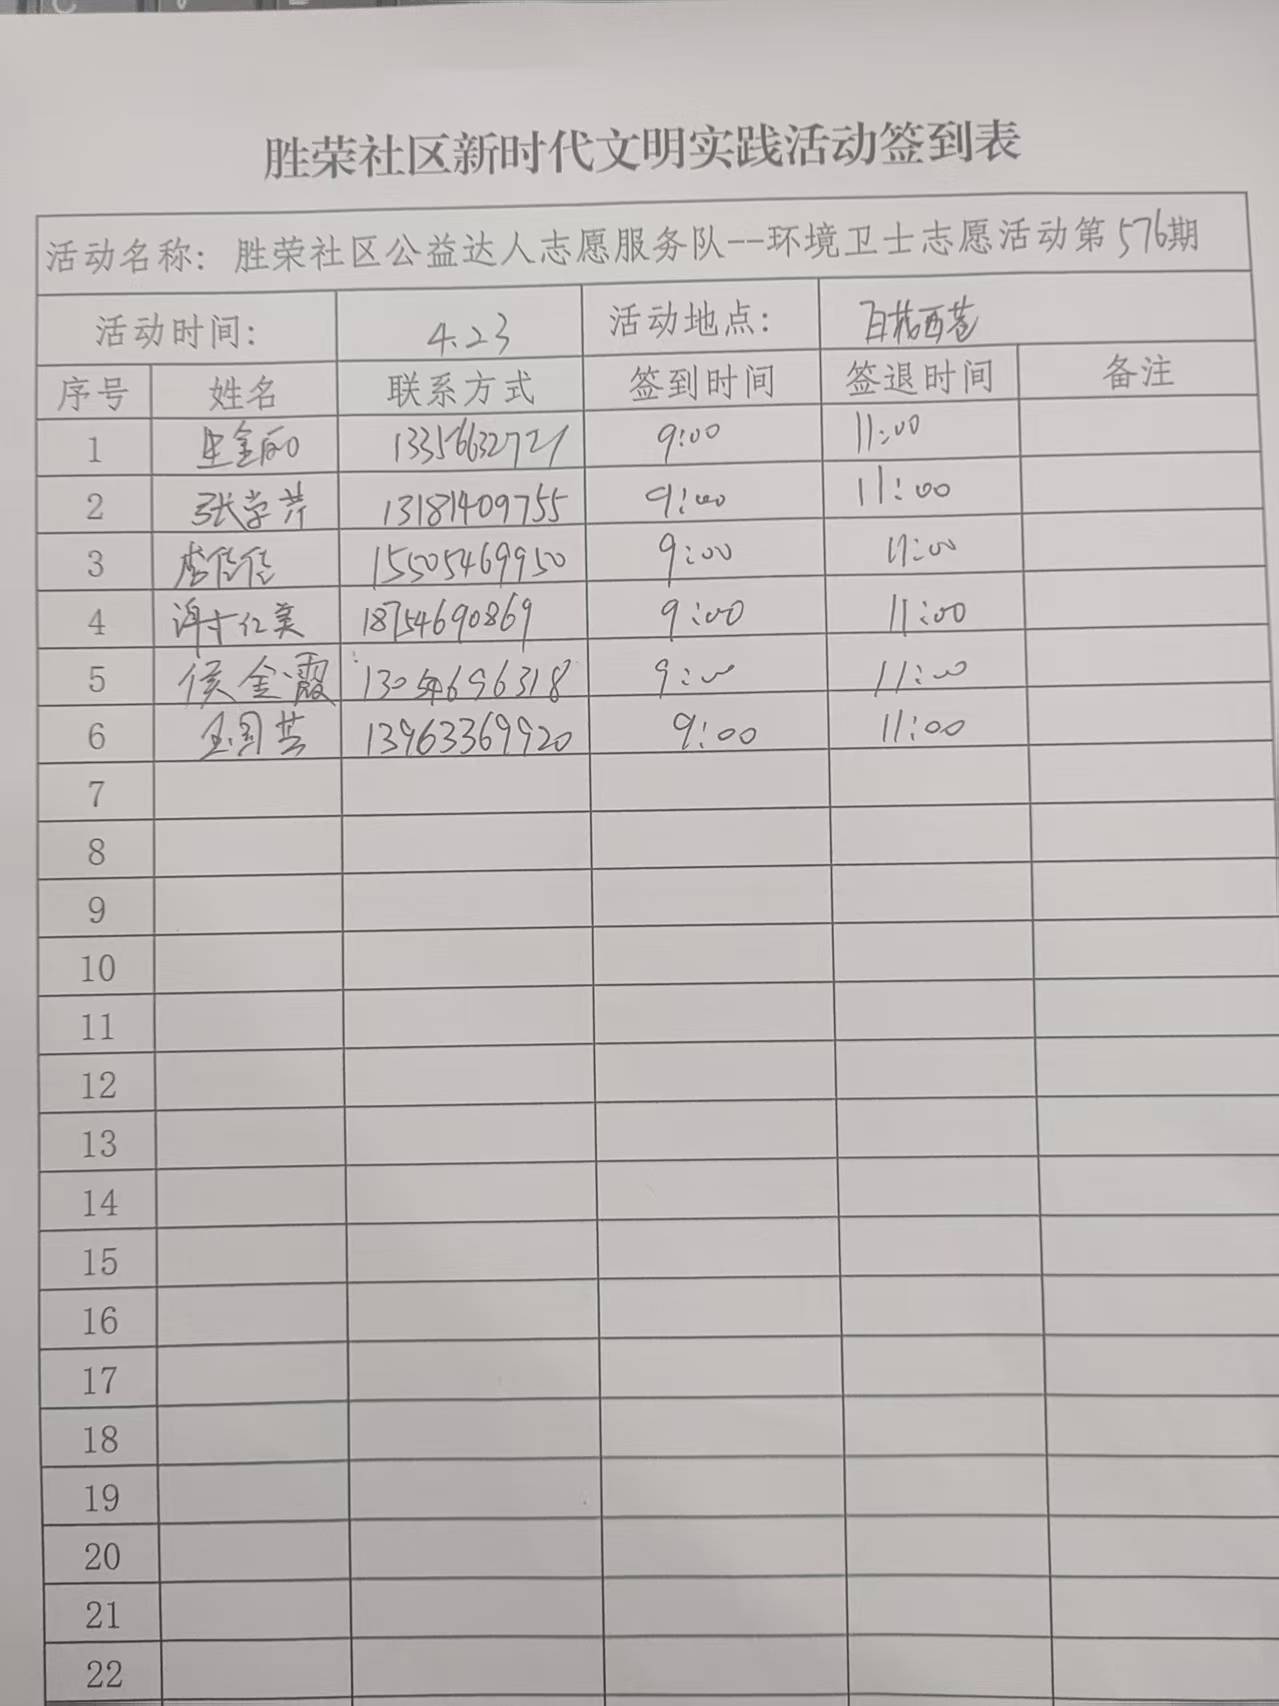 胜荣社区新时代文明实践活动签到表
活动名称：胜荣社区公益达人志愿服务队--环境卫士志愿活动第576期
活动时间： 4.23 活动地点： 西巷
序号 姓名 联系方式 签到时间 签退时间 备注
1 13356632721 9:00 11:00
2 张学芹 13181409755 9:00 11:00
3 李佳佳 15505469950 9:00 11:00
4 谢红美 18754690869 9:00 11:00
5 侯金霞 13054696318 9:00 11:00
6 13963369920 9:00 11:00
7
8
9
10
11
12
13
14
15
16
17
18
19
20
21
22